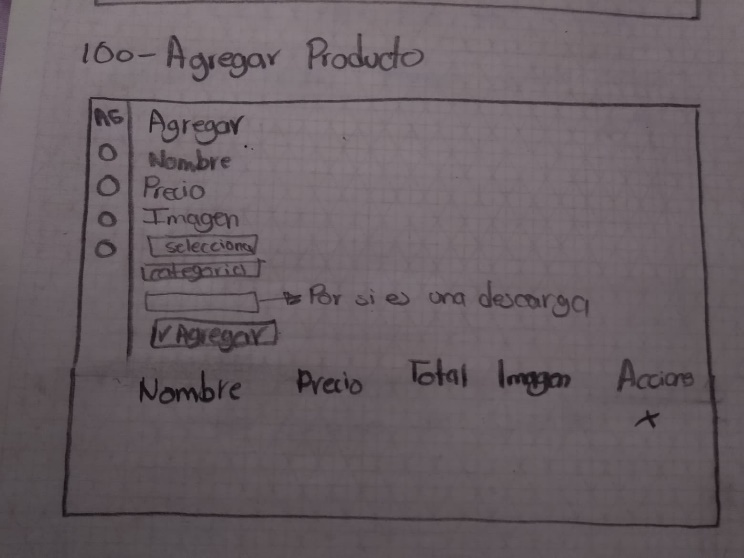 100-Agregar Producto
AG
Agregar
Nombre
Precio
Imagen
Selecciona
categoria
Por si es una descarga
✓ Agregar
Nombre Precio Total Imagen Accions
X